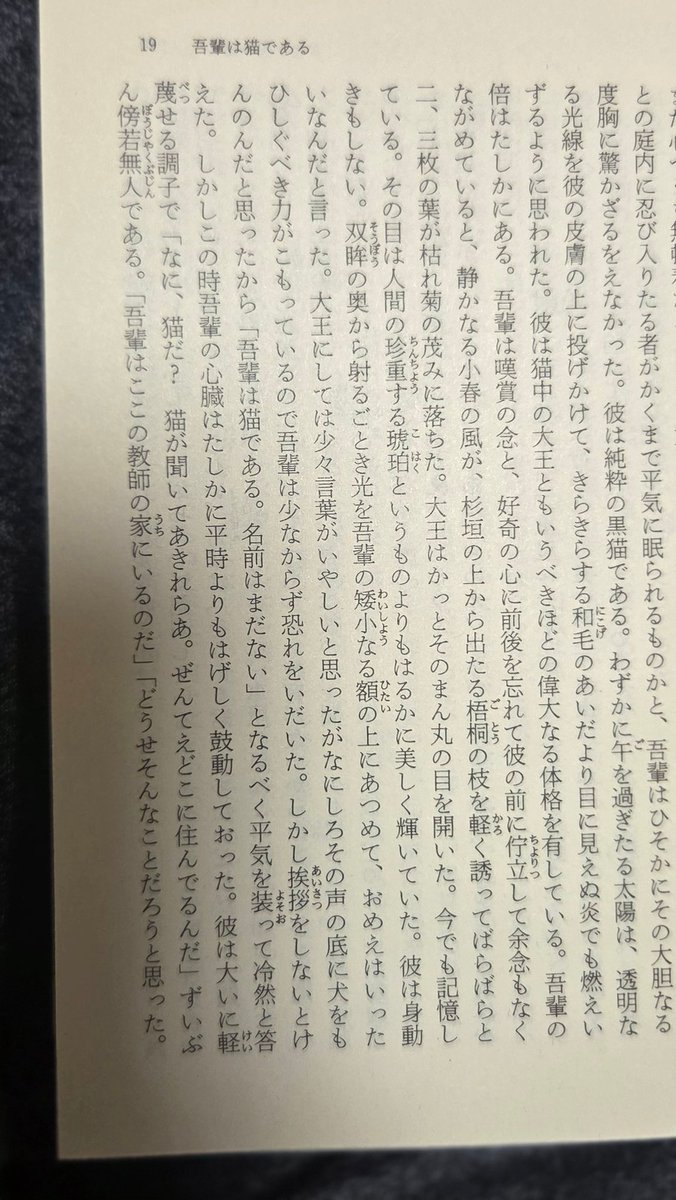 19 吾輩は猫である
との庭内に忍び入りたる者がかくまで平気に眠られるものかと、吾輩はひそかにその大胆なる
度胸に驚かざるをえなかった。彼は純粋の黒猫である。わずかに午を過ぎたる太陽は、透明な
る光線を彼の皮膚の上に投げかけて、きらきらする和毛のあいだより目に見えぬ炎でも燃えい
ずるように思われた。彼は猫中の大王ともいうべきほどの偉大なる体格を有している。吾輩の
倍はたしかにある。吾輩は嘆賞の念と、好奇の心に前後を忘れて彼の前に佇立して余念もなく
ながめていると、静かなる小春の風が、杉垣の上から出たる梧桐の枝を軽く誘ってばらばらと
二、三枚の葉が枯れ菊の茂みに落ちた。大王はかっとそのまん丸の目を開いた。今でも記憶し
ている。その目は人間の珍重する琥珀というものよりもはるかに美しく輝いていた。彼は身動
きもしない。双眸の奥から射るごとき光を吾輩の矮小なる額の上にあつめて、おめえはいった
いなんだと言った。大王にしては少々言葉がいやしいと思ったがなにしろその声の底に犬をも
ひしぐべき力がこもっているので吾輩は少なからず恐れをいだいた。しかし挨拶をしないとけ
んのんだと思ったから「吾輩は猫である。名前はまだない」となるべく平気を装って冷然と答
えた。しかしこの時吾輩の心臓はたしかに平時よりもはげしく鼓動しておった。彼は大いに軽
蔑せる調子で「なに、猫だ? 猫が聞いてあきれらあ。ぜんてえどこに住んでるんだ」ずいぶ
ん傍若無人である。「吾輩はここの教師の家にいるのだ」「どうせそんなことだろうと思った。